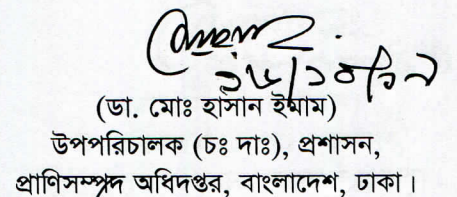 (ডা. মোঃ হাসান ইমাম)
উপপরিচালক (চঃ দাঃ), প্রশাসন,
প্রাণিসম্পদ অধিদপ্তর, বাংলাদেশ, ঢাকা।